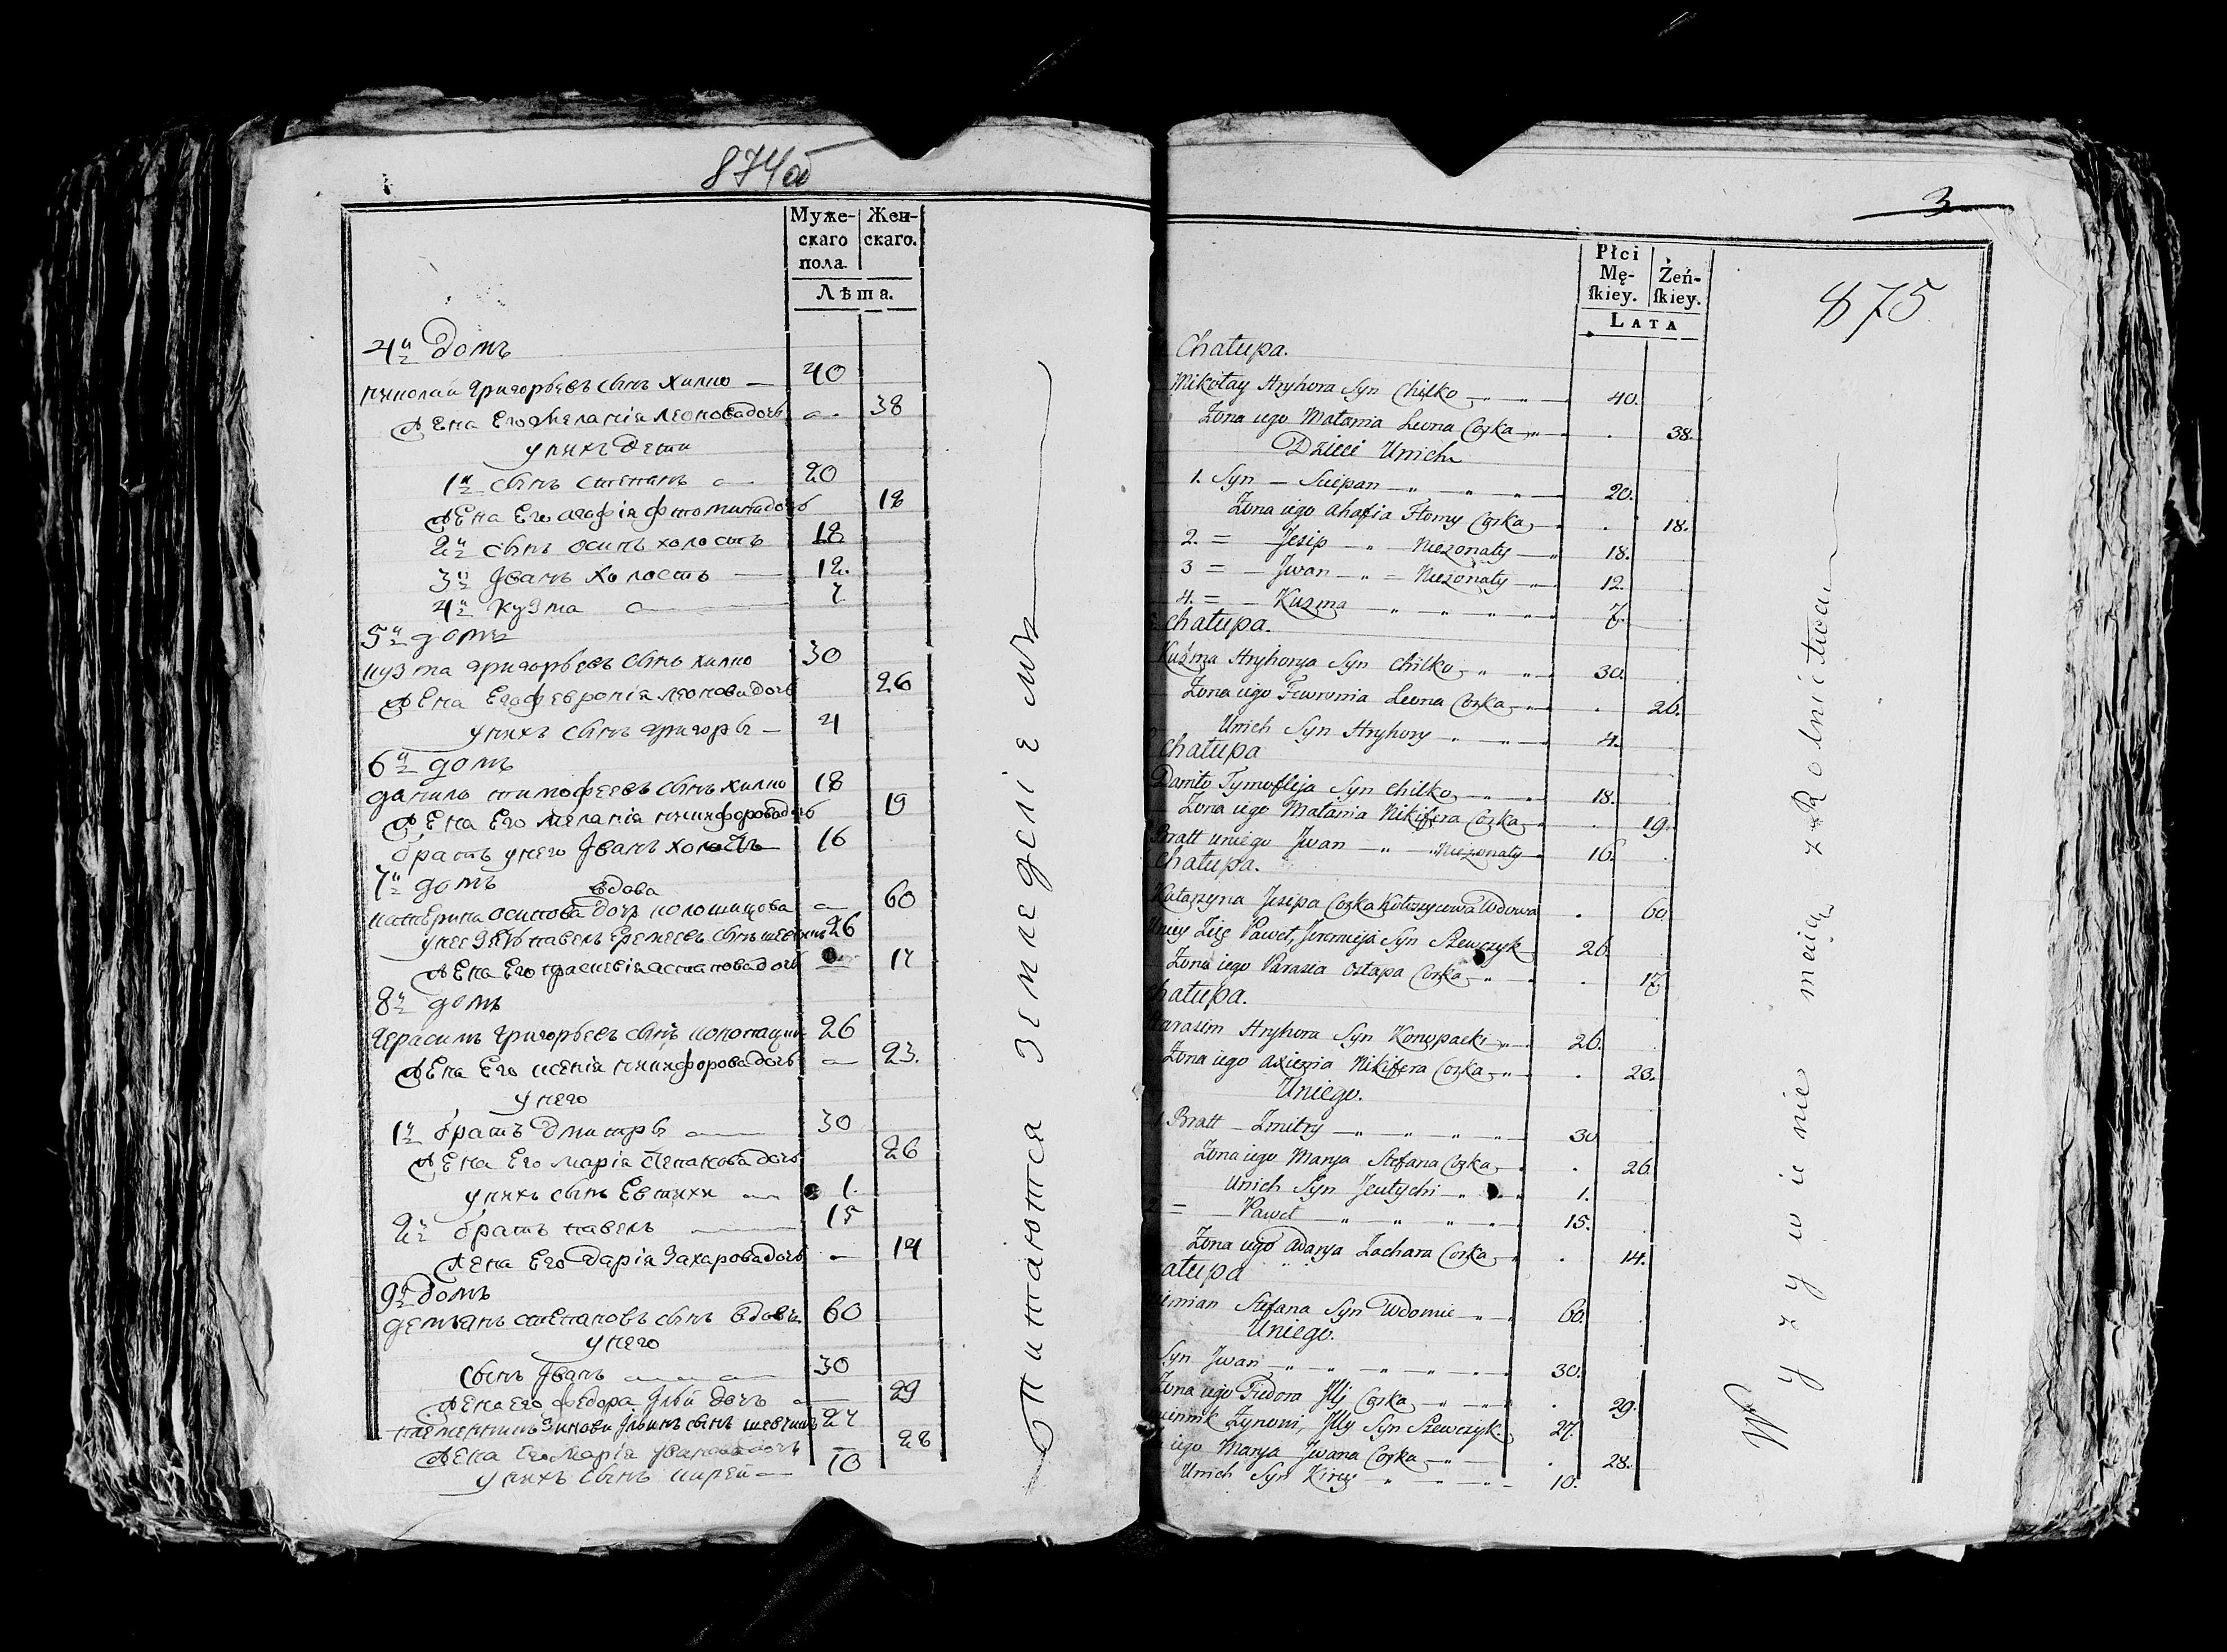 874об
Муже-
скаго
пола.
Жен-
скаго.
Лѣта.
4й домъ
николай григорьевъ сынъ хилко 40
жена его мелания леонова дочь 38
у них дети
1й сынъ степанъ 20
жена его агафия фтомина дочь 18
2й сынъ осипъ холостъ 18
3й Iванъ холостъ 12.
4й кузма 7
5й домъ
кузма григорьевъ сынъ хилко 30
жена его феврония леонова дочь 26
у нихъ сынъ григорь 4
6й домъ
данило тимофеевъ сынъ хилко 18
жена его мелания никифорова дочь 19
братъ у него Iванъ холостъ 16
7й домъ
вдова
катерина осипова дочь 60
у нее зять павелъ еремеевъ сынъ шевчикъ 26
жена его параскевия астапова дочь 17
8й домъ
герасимъ григорьевъ сынъ конопацки 26
жена его ксения никифорова дочь 23.
у него
1й братъ дмитръ 30
жена его мария степанова дочь 26
у нихъ сынъ евтихи 1.
2й братъ павелъ 15
жена его дария захарова дочь 14
9й домъ
демьянъ степановъ сынъ вдовъ 60
у него
сынъ Iванъ 30
жена его федора Iльи дочь 29
наеменникъ зинови Iльинъ сынъ шевчикъ 27
жена его мария Iванова дочь 28
у нихъ сынъ кирей 10
Питаются земледелiемъ
3
875
Płci
Mę-
ſkiey.
Żeń-
ſkiey.
LATA
Chałupa.
Mikołay Hryhora Syn Chilko 40.
Zona iego Małania Leona Corka 38.
Dzieci Unich
1. Syn — Sciepan 20.
Zona iego Ahafia Ftomy Corka 18.
2. = Jesip Niezonaty 18.
3 = Jwan = Niezonaty 12.
4. = Kuzma 7.
Chałupa.
Kuźma Hryhorya Syn Chilko 30.
Zona iego Fewronia Leona Corka 26.
Unich Syn Hryhory 4.
Chałupa
Daniło Tymofieja Syn Chilko 18.
Zona iego Małania Nikifera Corka 19.
Bratt uniego Jwan Niezonaty 16.
Chałupa.
Katarzyna Jesipa Corka Wdowa 60
Uniey Zięć Paweł, Jeremieja Syn Szewczyk 26.
Zona iego Parasia Ostapa Corka 17.
hałupa.
arasim Hryhora Syn Konopacki 26.
Zona iego Axienia Nikifera Corka 23.
Uniego.
1 Bratt — Zmitry 30
Zona iego Marya Stefana Corka 26
Unich Syn Jeutychi 1.
2 = Paweł 15.
Zona iego Adarya Zachara Corka 14.
ałupa
emian Stefana Syn Wdowiec 60.
Uniego.
Syn Jwan 30.
Zona iego Fiedora Jlij Corka 29.
iennik Zynowi, Jlly Syn Szewczyk 27.
iego Marya Jwana Corka 28.
Unich Syn Kirey 10.
Wyzywienie menią z Rolnictwa